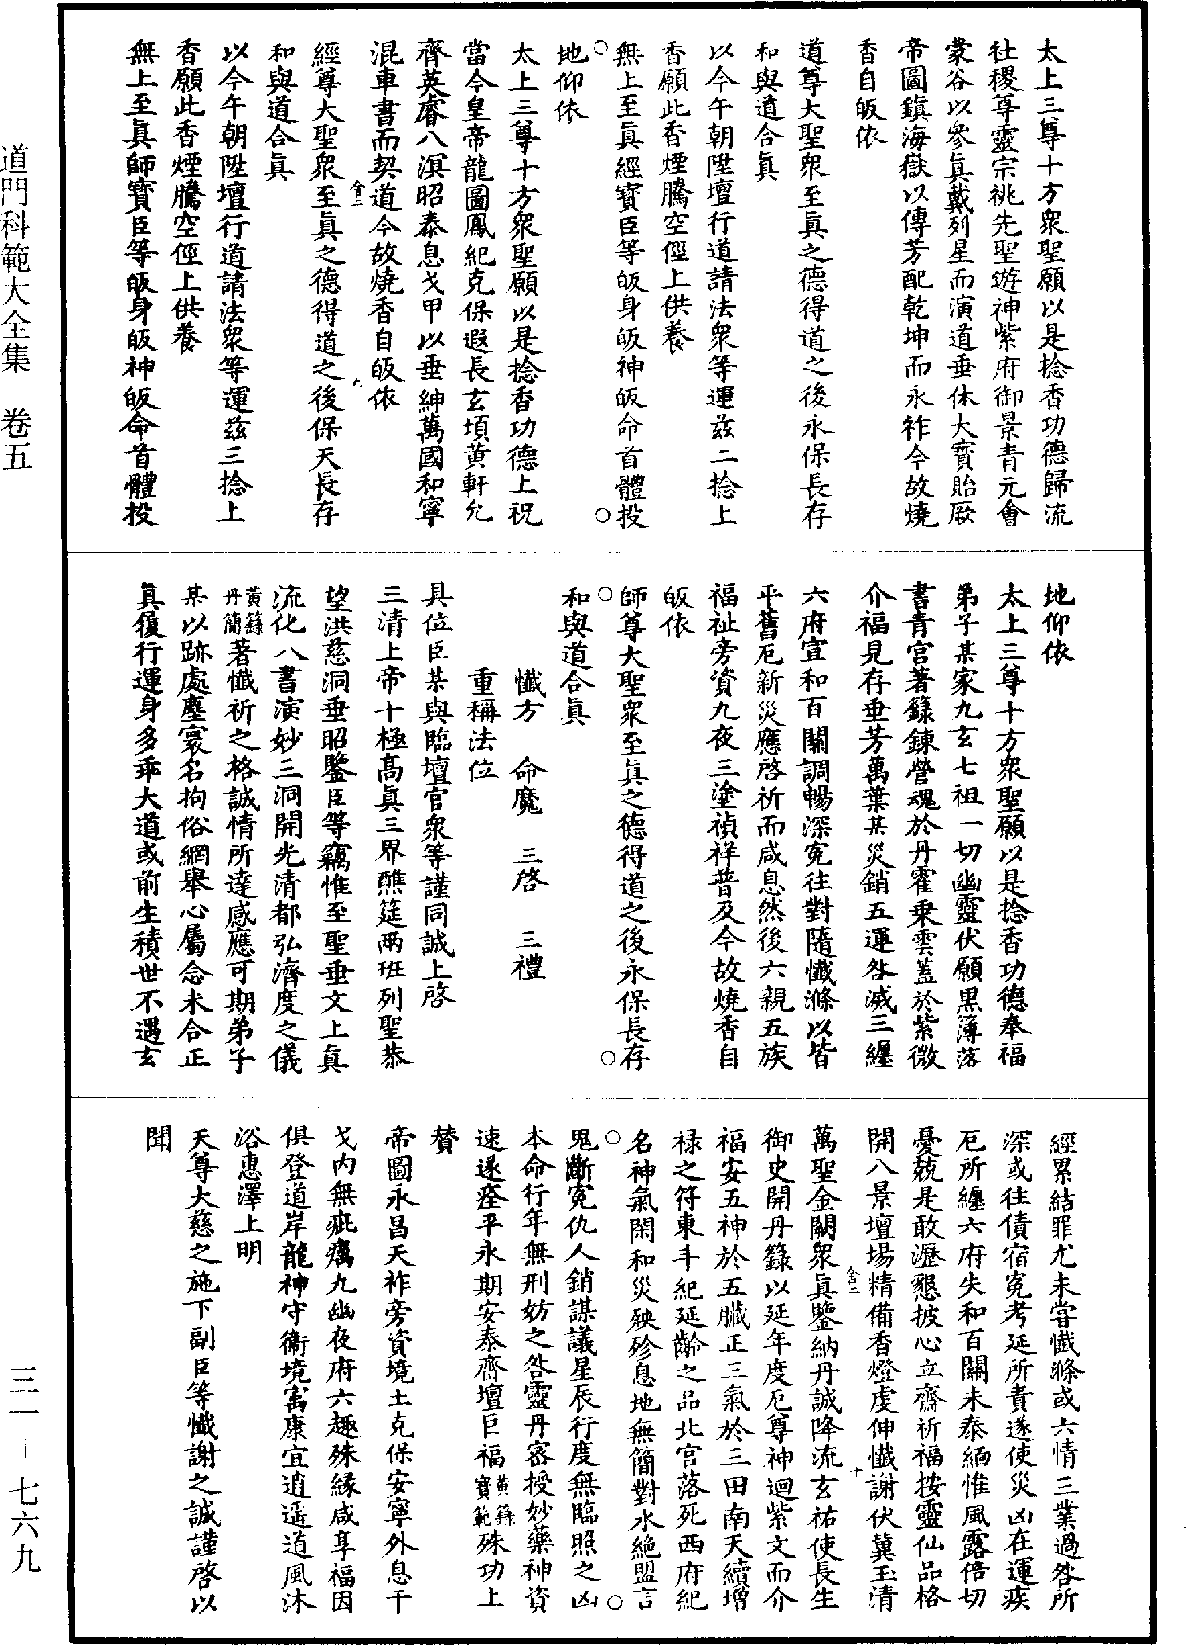 太上三尊十方衆聖願以是捻香功德歸流
社稷尊靈宗祧先聖遊神紫府御景青元會
蒙谷以參真戴列星而演道垂休大寳貽厥
帝圖鎮海嶽以傳芳配乾坤而永祚今故燒
香自皈依
道尊大聖衆至真之德得道之後永保長存
和與道合真
以今午朝陞壇行道請法衆等運兹二捻上
香願此香煙騰空徑上供養
無上至真經寳臣等皈身皈神皈命首體投
地仰依
太上三尊十方衆聖願以是捻香功德上祝
當今皇帝龍圖鳳紀克保遐長玄頊黄軒允
齊英睿八溟昭泰息戈甲以垂紳萬國和寧
混車書而契道今故燒香自皈依
經尊大聖衆至真之德得道之後保天長存
和與道合真
以今午朝陞壇行道請法衆等運兹三捻上
香願此香煙騰空徑上供養
無上至真師寳臣等皈身皈神皈命首體投
地仰依
太上三尊十方衆聖願以是捻香功德奉福
弟子某家九玄七祖一切幽靈伏願黑簿落
書青宫著籙鍊營魂於丹霍乗雲蓋於紫微
介福見存垂芳萬葉某災銷五運咎滅三纏
六府宣和百關調暢深寃往對隨懺滌以皆
平舊厄新災應啓祈而咸息然後六親五族
福祉旁資九夜三塗禎祥普及今故燒香自
皈依
師尊大聖衆至真之德得道之後永保長存
和與道合真
懺方　命魔　三啓　三禮
重稱法位
具位臣某與臨壇官衆等謹同誠上啓
三清上帝十極高真三界醮筵兩班列聖恭
望洪慈洞垂昭鑒臣等竊惟至聖垂文上真
流化八書演妙三洞開光清都弘濟度之儀
黄籙丹簡著懺祈之格誠情所達感應可期弟子
某以跡處塵寰名拘俗網舉心屬念未合正
真復行運身多乖大道或前生積世不遇玄
經累結罪尤未嘗懺滌或六情三業過咎所
深或往債宿寃考延所責遂使災凶在運疾
厄所纏六府失和百關未泰緬惟風露倍切
憂兢是敢瀝懇披心立齋祈福按靈仙品格
開八景壇場精備香燈虔伸懺謝伏冀玉清
萬聖金闕衆真鑒納丹誠降流玄祐使長生
御史開丹籙以延年度厄尊神迴紫文而介
福安五神於五臟正三氣於三田南天續增
禄之符東斗紀延齡之品北宫落死西府紀
名神氣閑和災殃殄息地無簡對水絶盟言
鬼斷寃仇人銷謀議星辰行度無臨照之凶
本命行年無刑妨之咎靈丹密授妙藥神資
速遂痊平永期安泰齊壇巨福黄籙寳範殊功上
賛
帝圖永昌天祚旁資境土克保安寧外息干
戈内無疵癘九幽夜府六趣殊縁咸享福因
俱登道岸龍神守衞境富康宜逍遥道風沐
浴惠澤上明
天尊大慈之施下副臣等懺謝之誠謹啓以
聞
道門科範大全集　卷五
三一—七六九